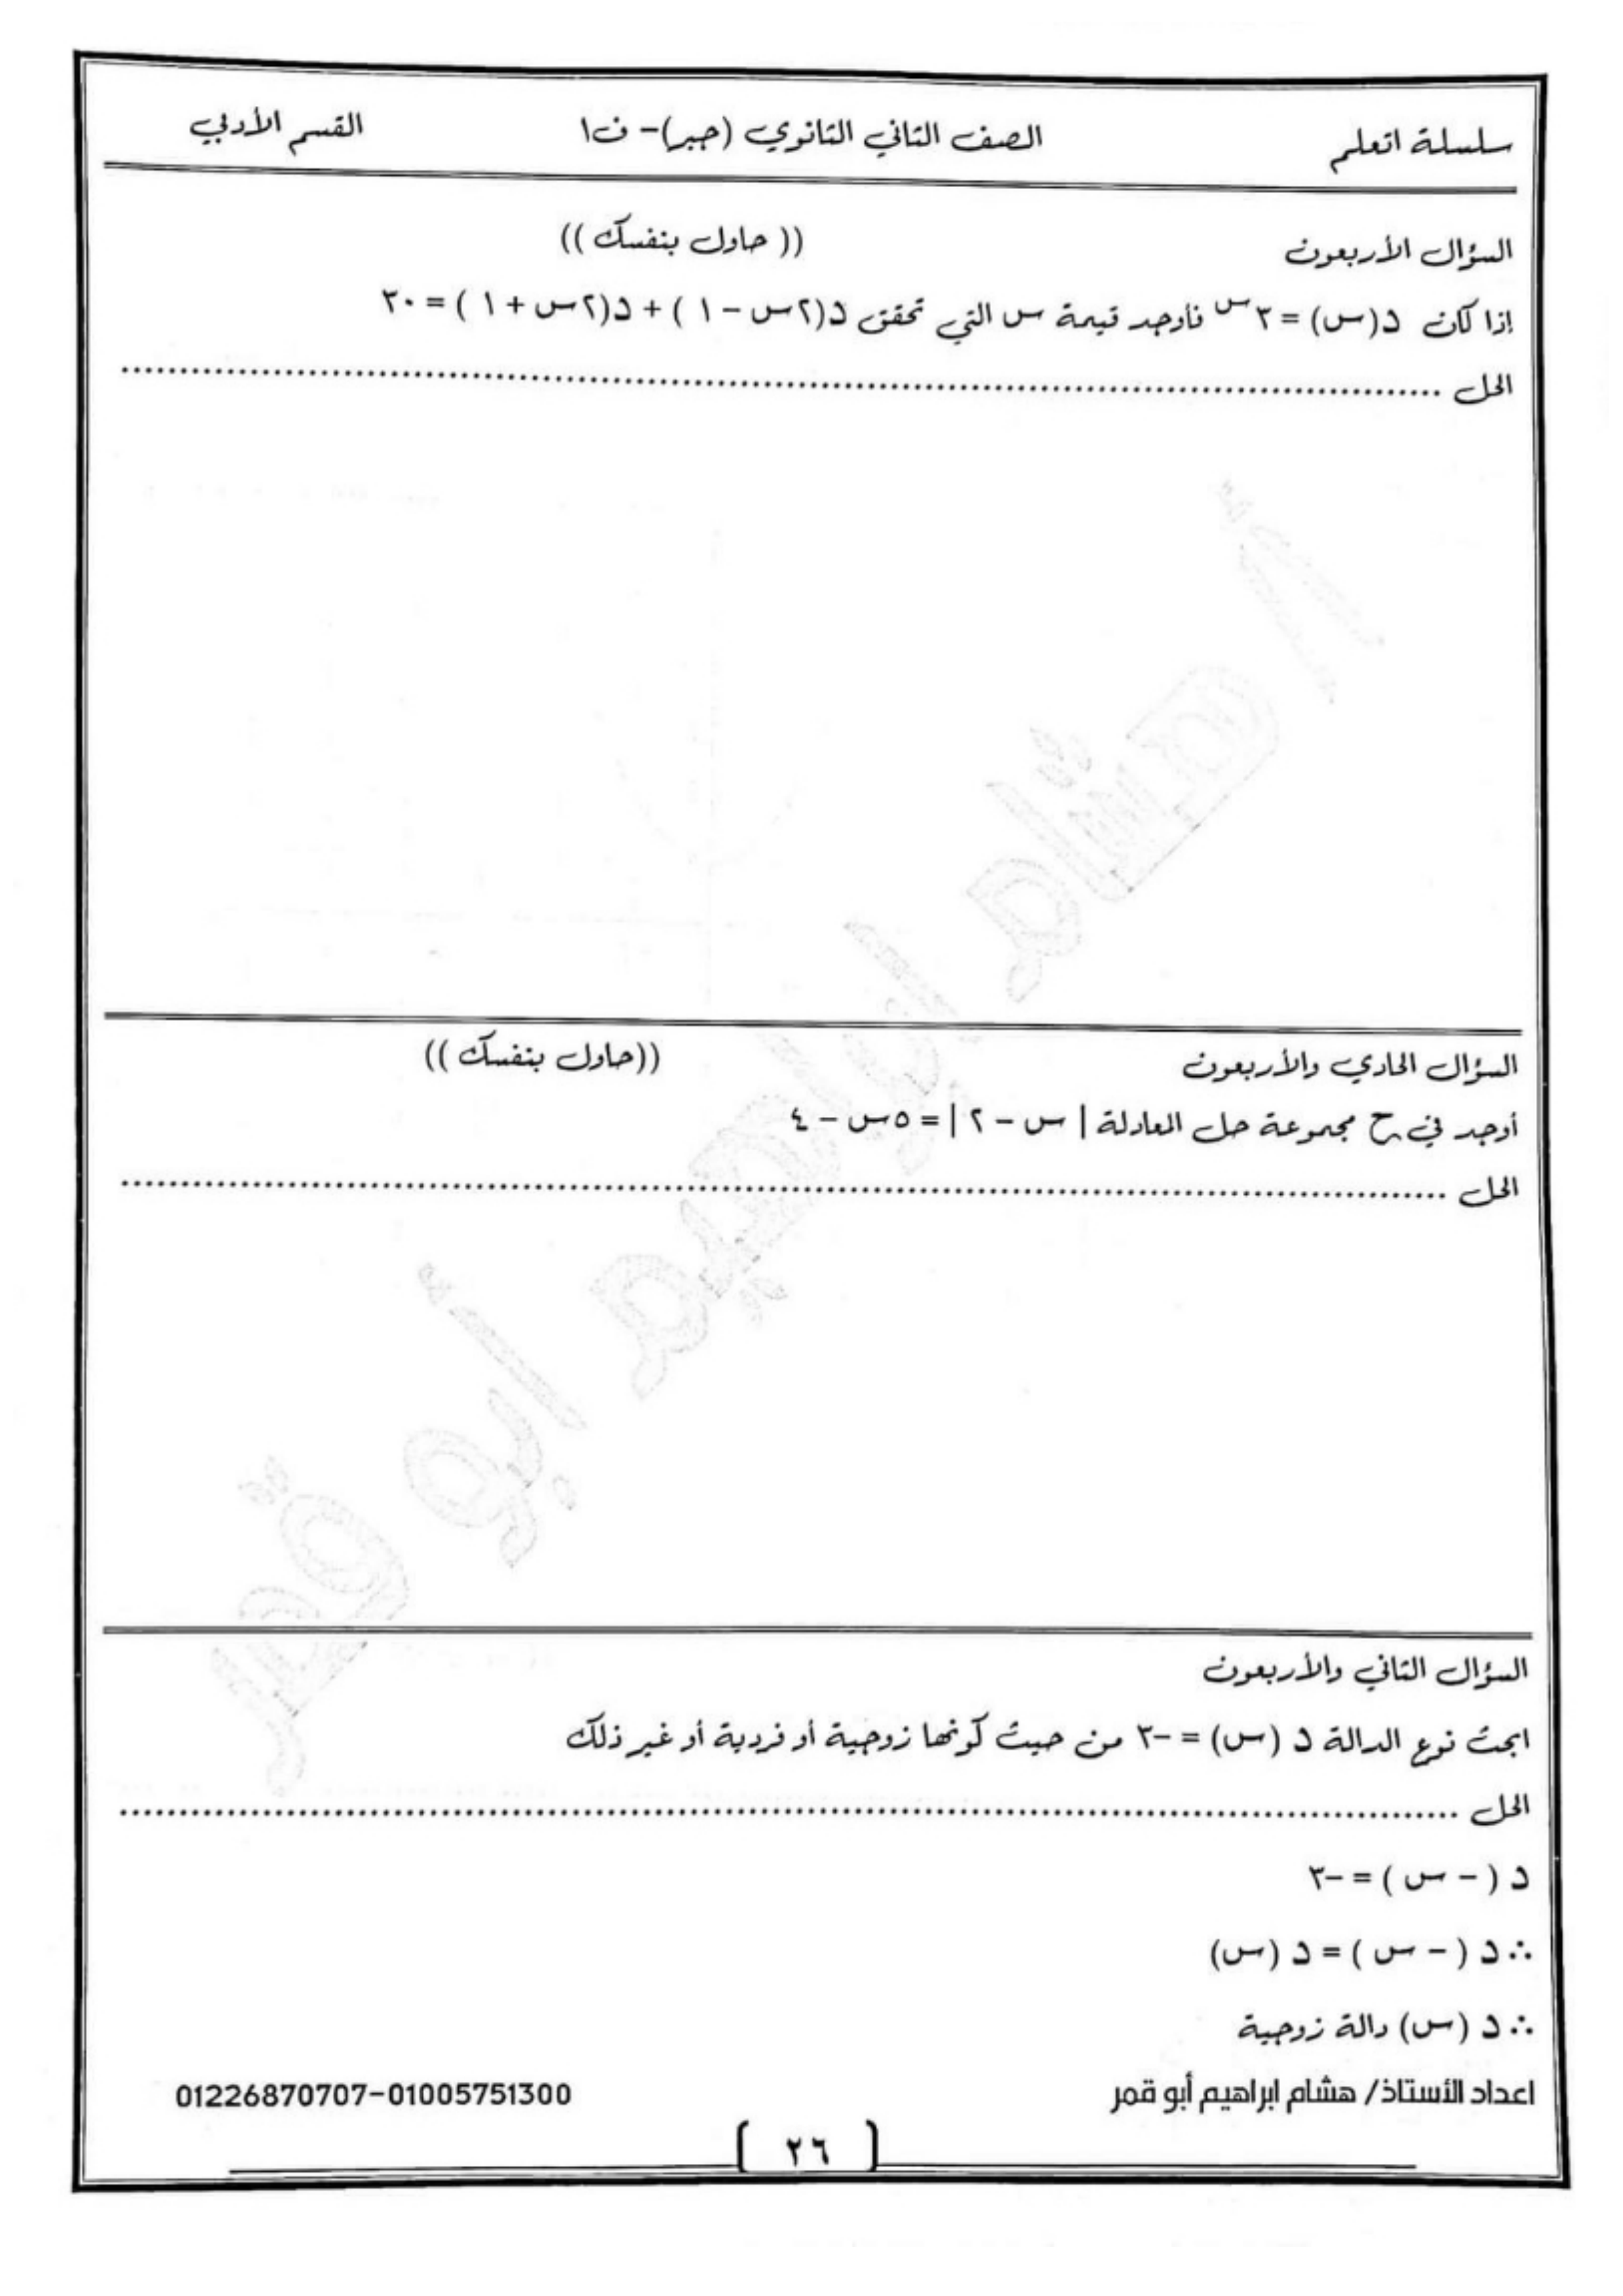 سلسلة اتعلم الصف الثاني الثانوي (جبر)- ف١ القسم الأدبي
السؤال الأربعون (( حاول بنفسك ))
إذا كان د(س) = ٣س فأوجد قيمة س التي تحقق د(٢س – ١ ) + د(٢س + ١ ) = ٣٠
الحل ........................................................................................................
السؤال الحادي والأربعون ((حاول بنفسك ))
أوجد في ح مجموعة حل المعادلة | س – ٢ | = ٥س – ٤
الحل ........................................................................................................
السؤال الثاني والأربعون
ابحث نوع الدالة د (س) = –٣ من حيث كونها زوجية أو فردية أو غير ذلك
الحل ........................................................................................................
د ( – س ) = –٣
∴ د ( – س ) = د (س)
∴ د (س) دالة زوجية
اعداد الأستاذ/ هشام ابراهيم أبو قمر 01226870707-01005751300
[ ٢٦ ]
أ/ هشام إبراهيم أبو قمر